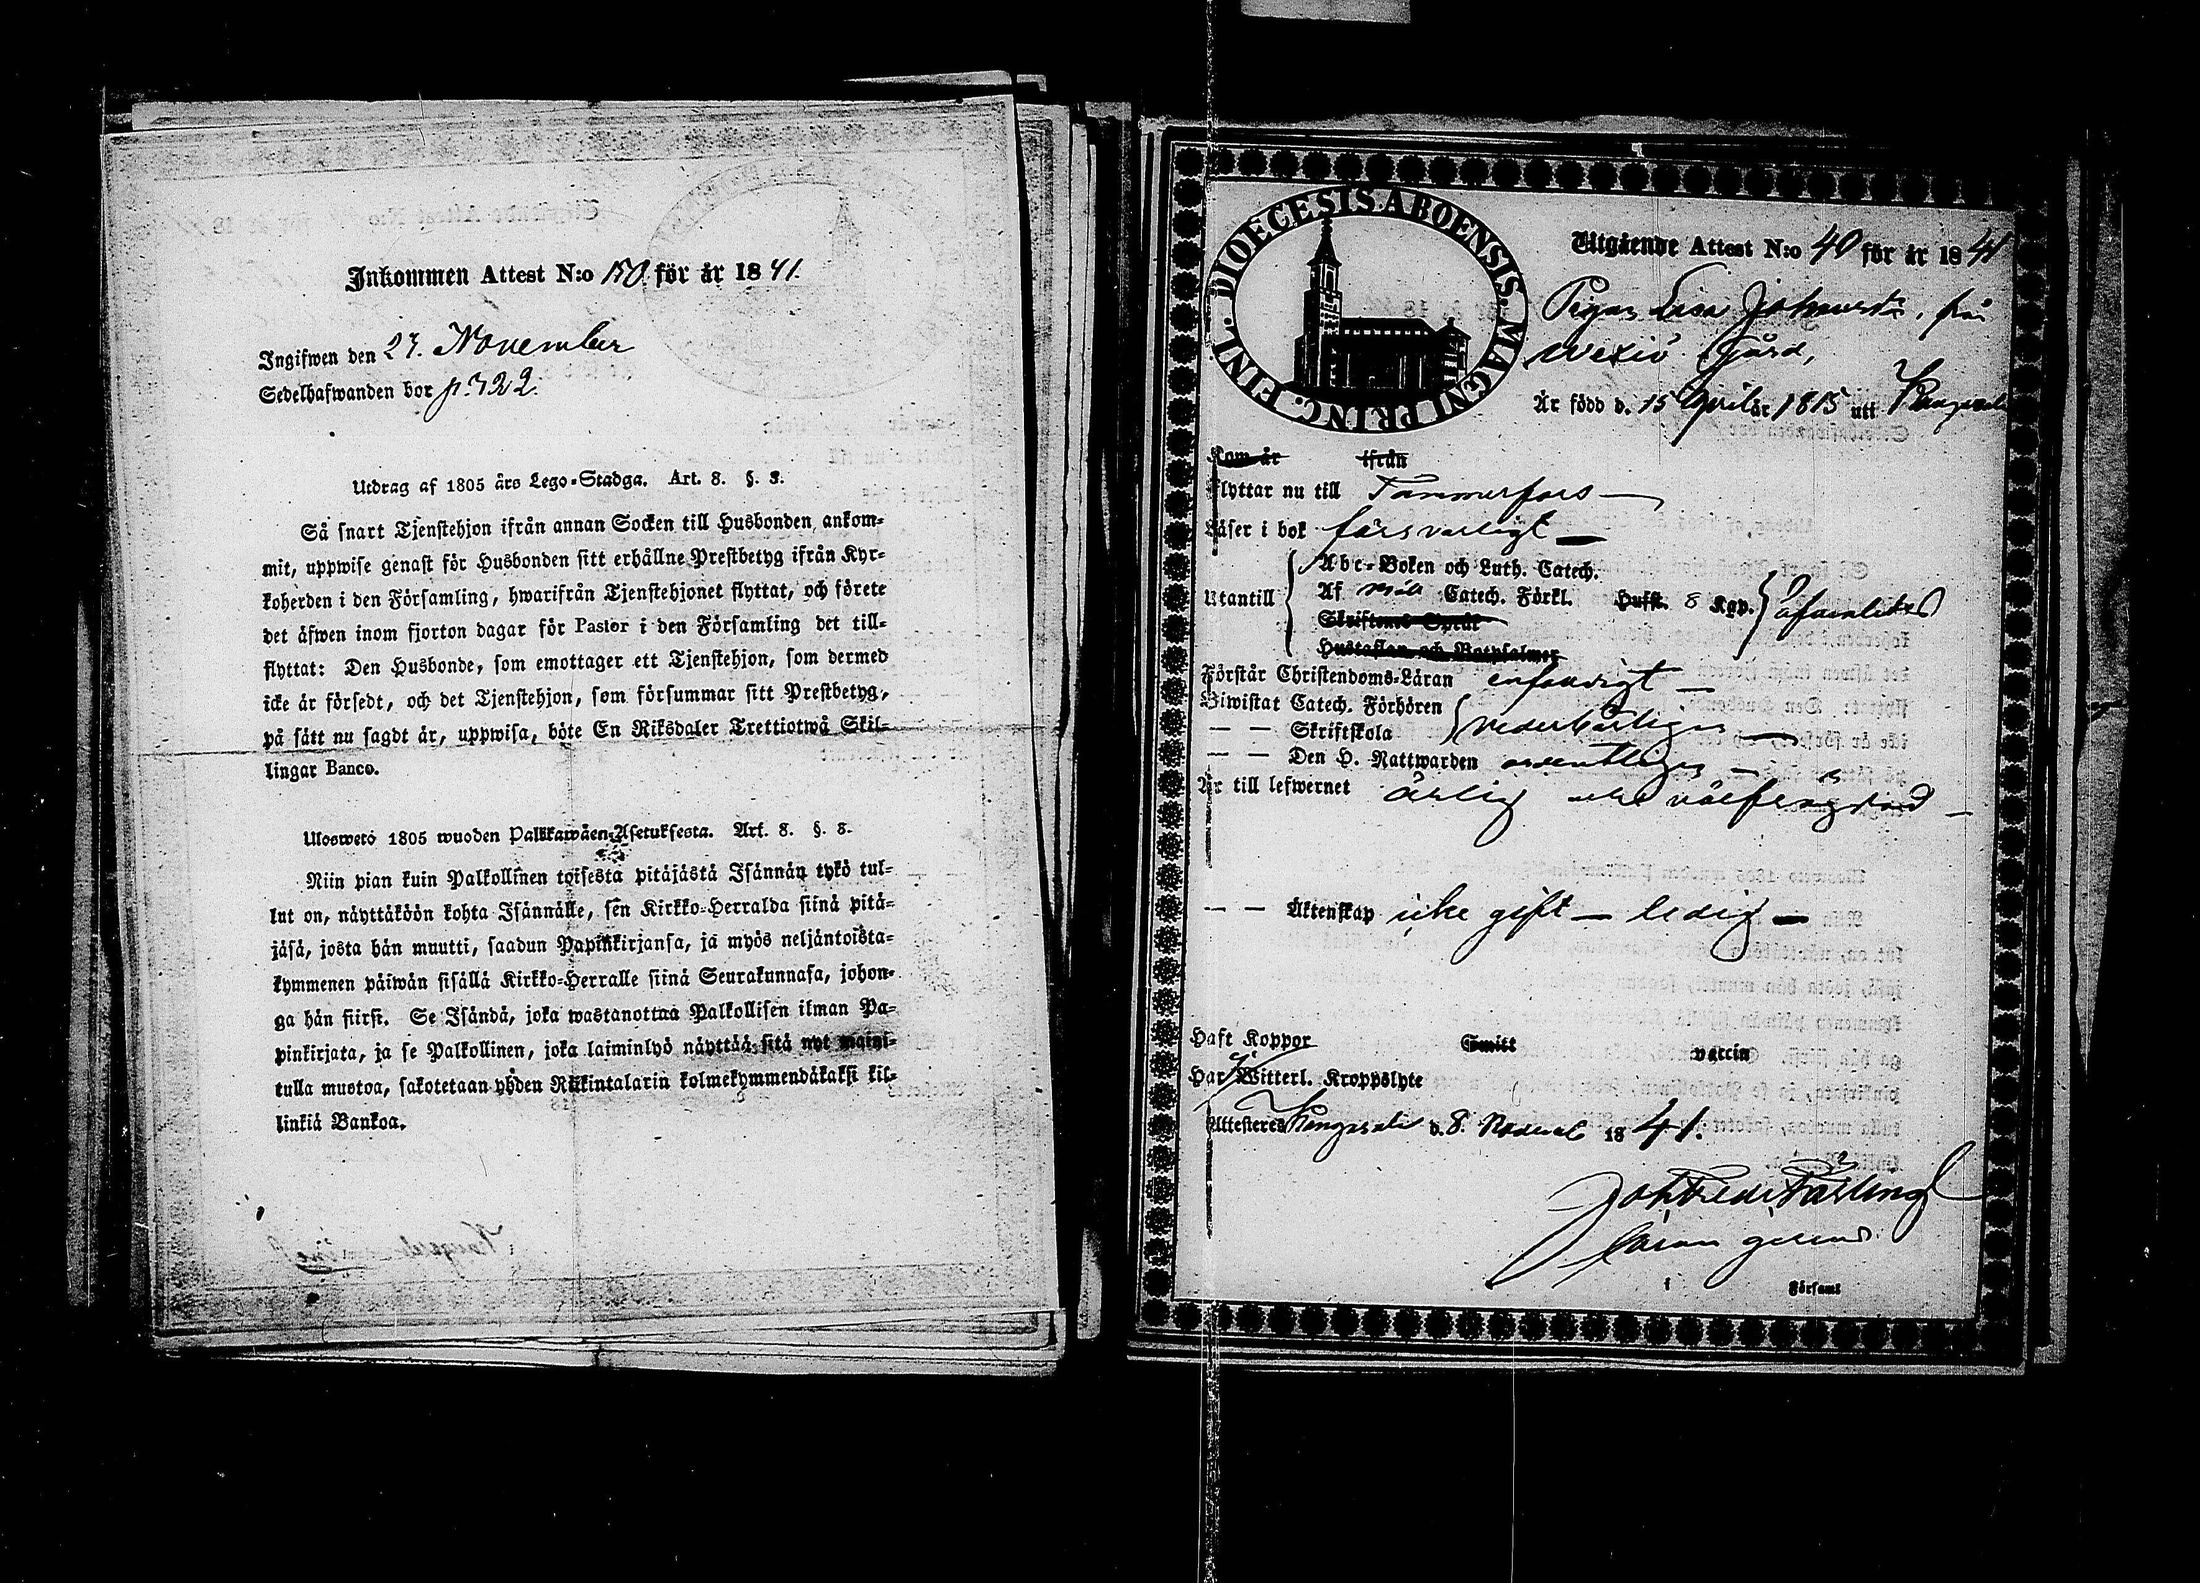 Inkommen Attest N:o 150. för år 1841.
Ingifwen den 27. November
Sedelhafwanden bor p. 722.
Utdrag af 1805 års Lego-Stadga. Art. 8. §. 8.
Så snart Tjenstehjon ifrån annan Socken till Husbonden ankom-
mit, uppwise genast för Husbonden sitt erhållne Prestbetyg ifrån Kyr-
koherden i den Församling, hwarifrån Tjenstehjonet flyttat, och förete
det äfwen inom fjorton dagar för Pastor i den Församling det till-
flyttat: Den Husbonde, som emottager ett Tjenstehjon, som dermed
icke är försedt, och det Tjenstehjon, som försummar sitt Prestbetyg,
på sätt nu sagdt är, uppwisa, böte En Riksdaler Trettiotwå Skil-
lingar Banco.
Uloswetö 1805 wuoden Palkkawäen-Asetuksesta. Art. 8. §. 8.
Niin pian kuin Palkollinen toisesta pitäjästä Isännän tykö tul-
lut on, näyttäköön kohta Isännälle, sen Kirkko-Herralda siinä pitä-
jäsä, josta hän muutti, saadun Papinkirjansa, ja myös neljäntoista-
kymmenen päiwän sisällä Kirkko-Herralle siinä Seurakunnasa, johon-
ga hän siirsi. Se Isändä, joka wastanottaa Palkollisen ilman Pa-
pinkirjata, ja se Palkollinen, joka laiminlyö näyttää sitä nyt maini-
tulla muotoa, sakotetaan yhden Riikintalarin kolmekymmendäkaksi kil-
linkiä Bankoa.
DIOECESIS ABOENSIS. MAGNI PRINC. FINL.
Utgående Attest N:o 40 för år 1841
Pigan Lisa från
Wexiö Gård,
Är född d. 15 April år 1815 uti Kangasala
Kom år ifrån
Flyttar nu till Tammerfors
Läser i bok försvarligt
Abc-Boken och Luth. Catech.
Utantill Af Catech. Förkl. Husst. 8 Kap.
Skriftenes Språk
Hustaflan och Botpsalmer
Förstår Christendoms-Läran enfaldigt
Biwistat Catech. Förhören
— — Skriftskola vederbörligen
— — Den H. Nattwarden ordentligen
Är till lefwernet ärlig och välfrägdad
— — Äktenskap icke gift — ledig
Haft Koppor Smitt vaccin
Har Witterl. Kroppslyte
Attesteres Kangasala d. 8. 1841.
i Församl